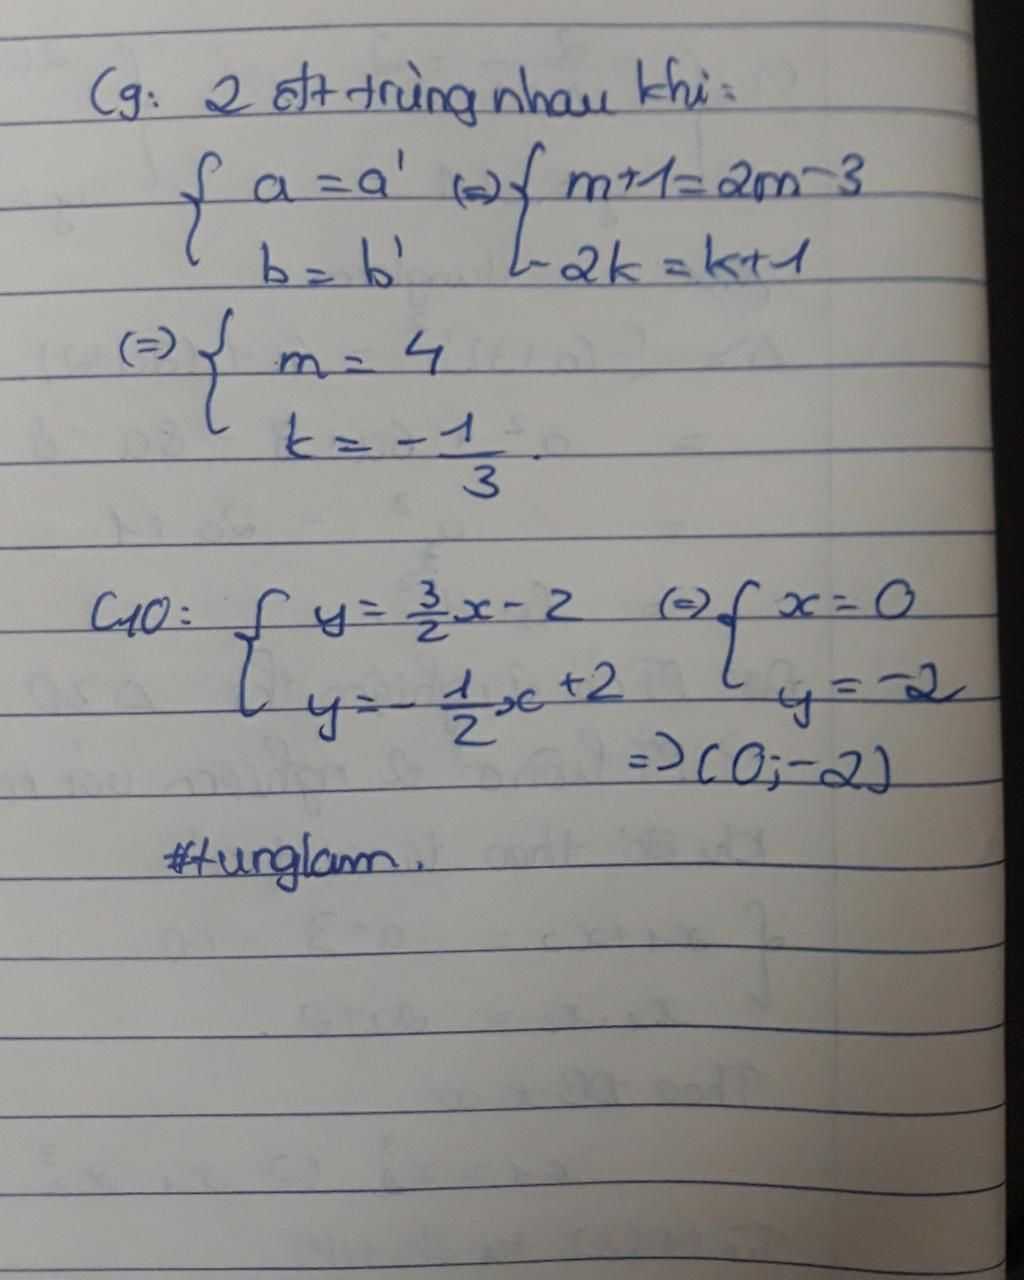 C9: 2 đt trùng nhau khi:
{ a = a' (=) { m+1 = 2m-3
b = b' -2k = k+1
(=) { m = 4
k = -1/3.
C10: { y = 3/2x - 2 (=) { x = 0
y = -1/2x + 2 y = -2
=> (0; -2)
#turglam.